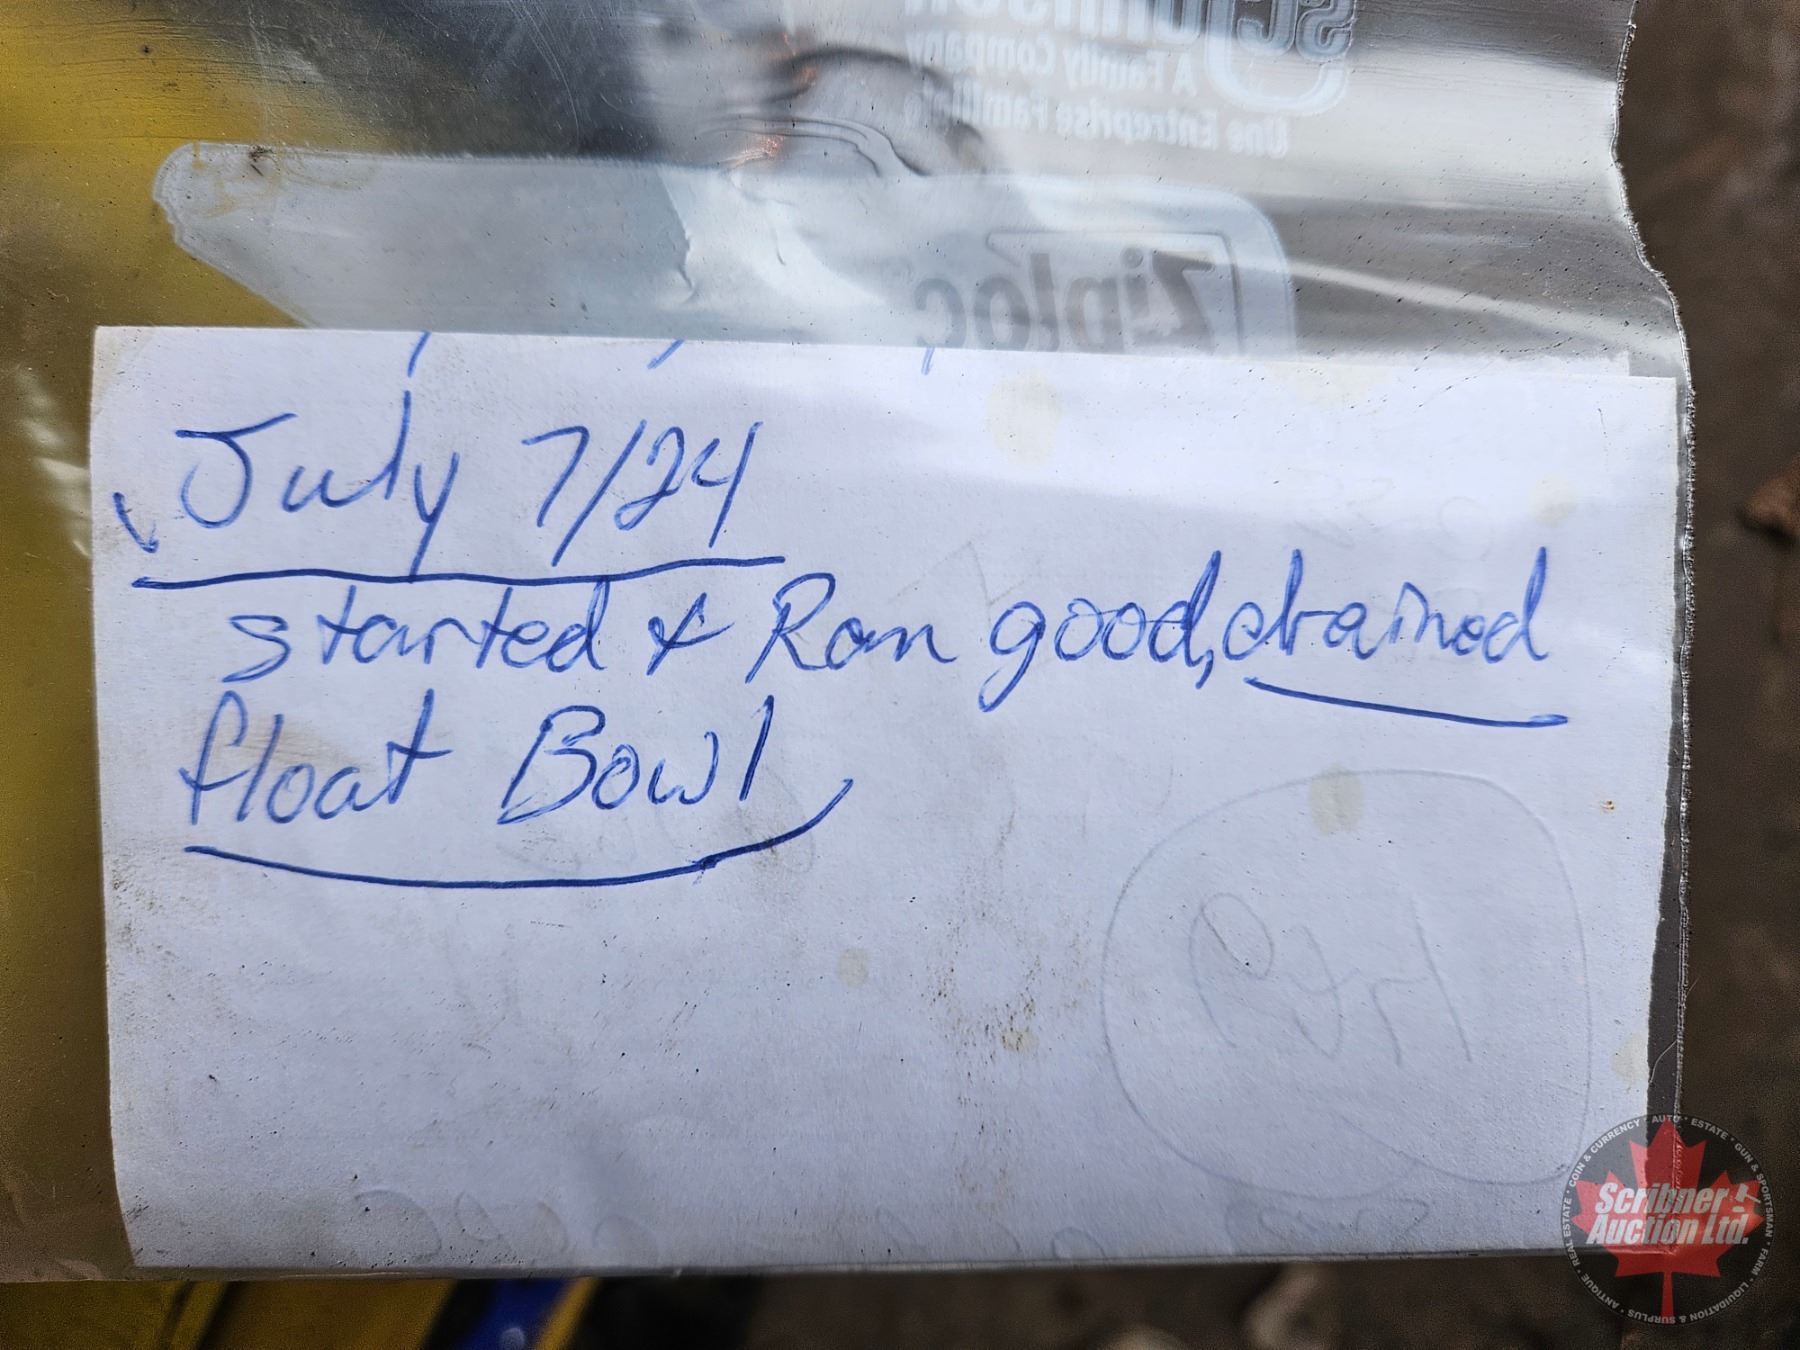 SC Johnson
A Family Company
Une Entreprise Familiale
Ziploc
July 7/24
started & Ran good, drained
float Bowl
Scribner
Auction Ltd.
REAL ESTATE • COIN & CURRENCY • AUTO • ESTATE • GUN & SPORTSMAN • FARM • LIQUIDATION & SURPLUS • ANTIQUE